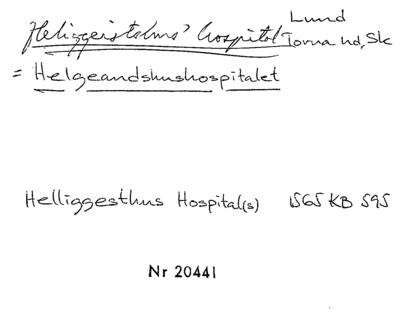 Heliggeisthus' hospital Lund
Torna hd, Sk
= Helgeandshushospitalet
Helliggesthus Hospital(s) 1565 KB 595
Nr 20441